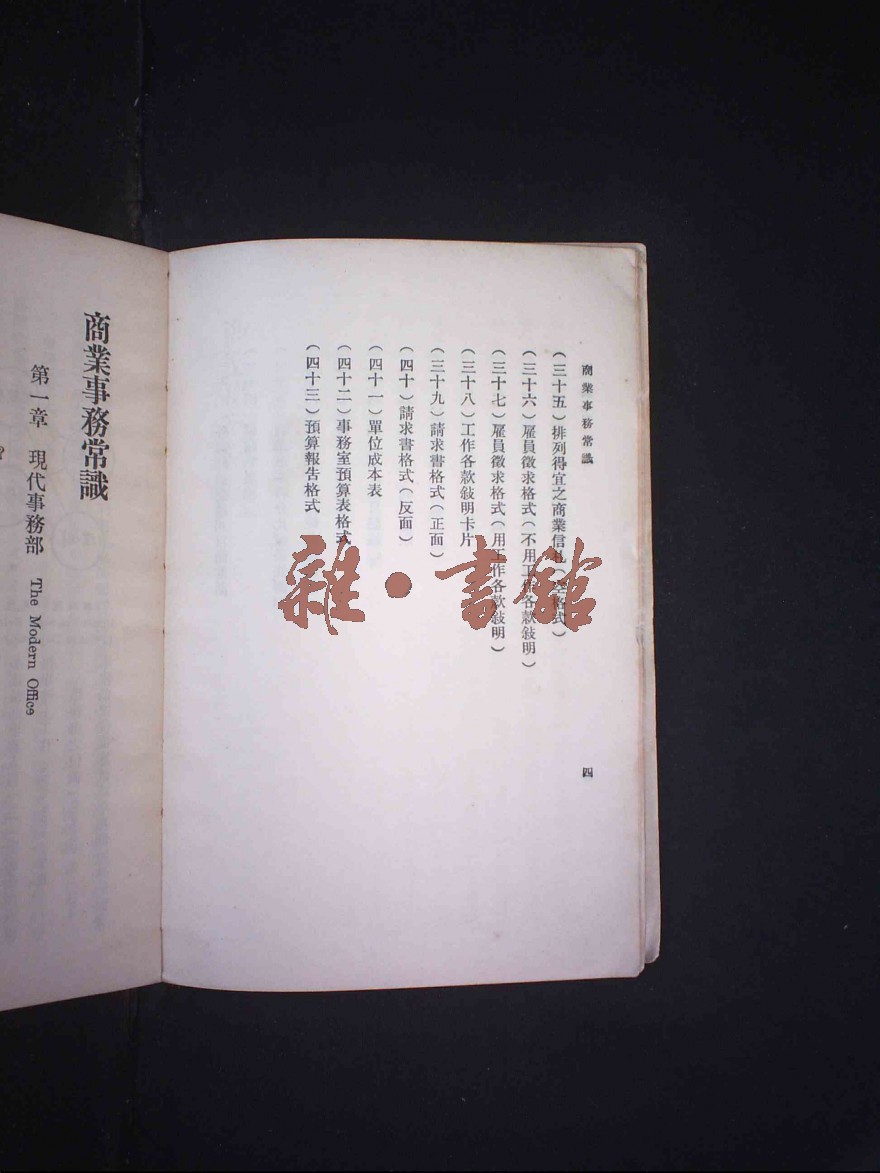 商業事務常識
(三十五)排列得宜之商業信札(空格式)
(三十六)雇員徵求格式(不用工作各款敍明)
(三十七)雇員徵求格式(用工作各款敍明)
(三十八)工作各款敍明卡片
(三十九)請求書格式(正面)
(四十)請求書格式(反面)
(四十一)單位成本表
(四十二)事務室預算表格式
(四十三)預算報告格式
四
商業事務常識
第一章 現代事務部 The Modern Office
雜·書館